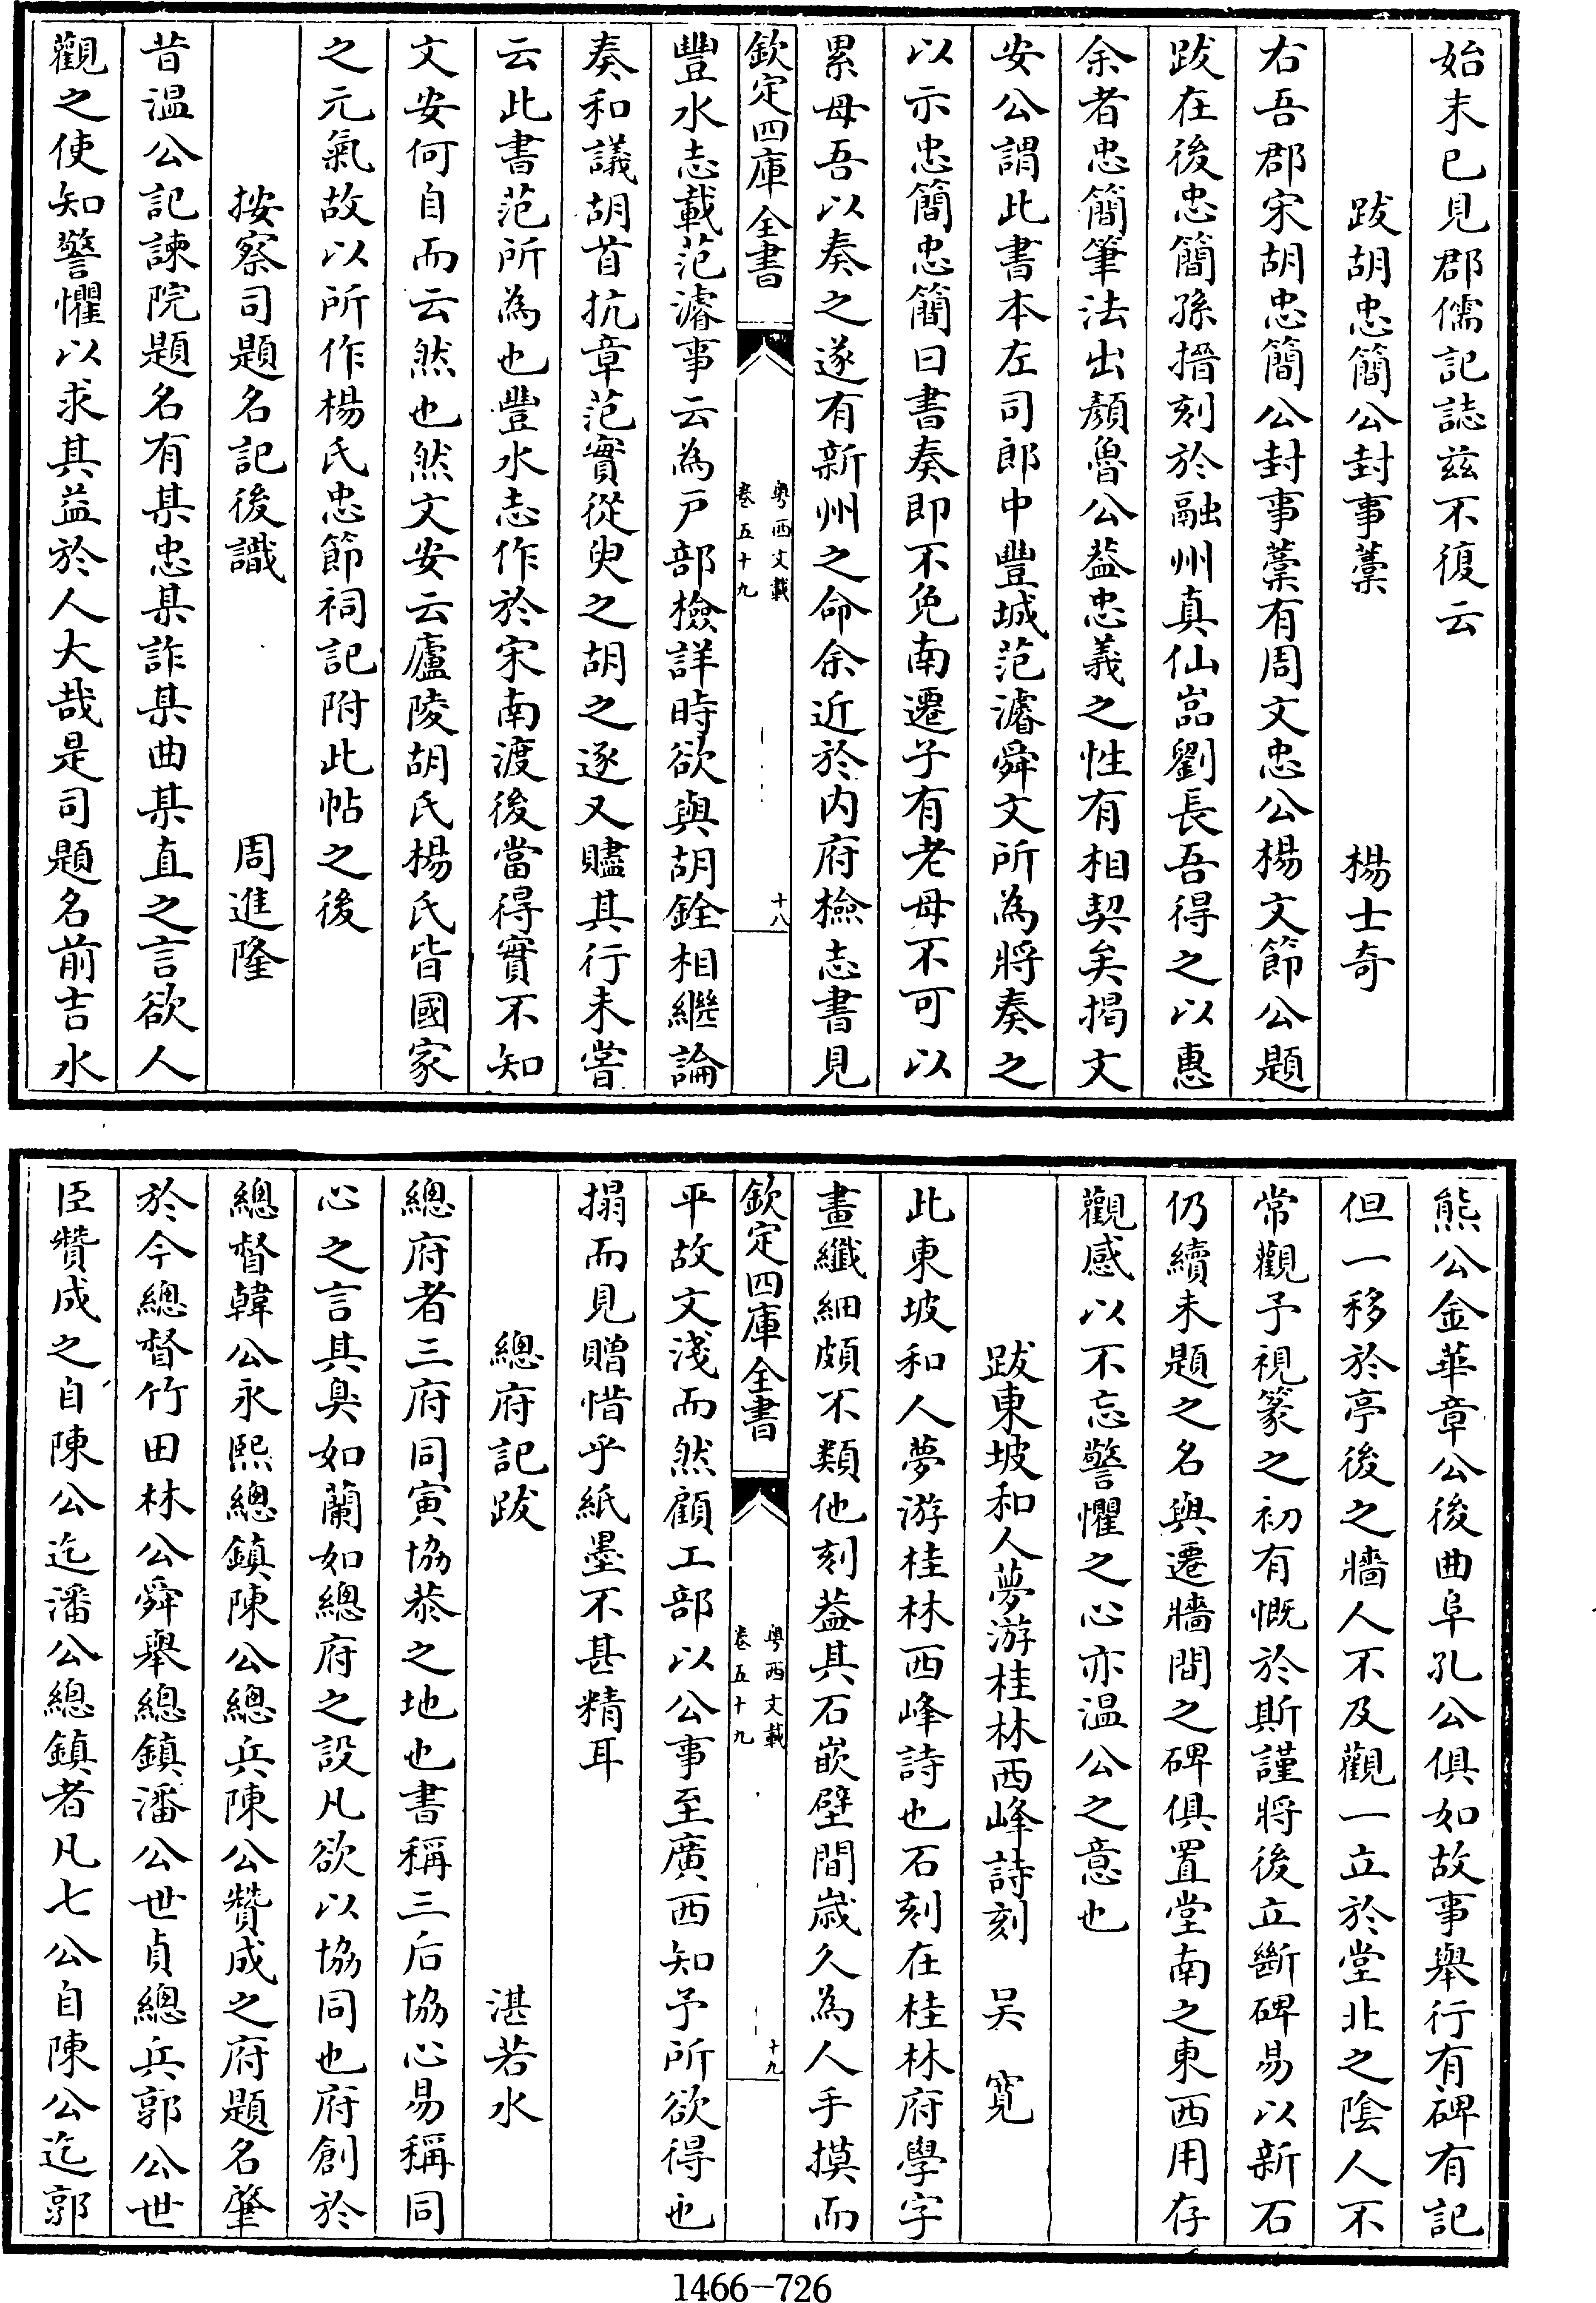 始末已見郡儒記誌兹不復云
跋胡忠簡公封事藁　楊士奇
右吾郡宋胡忠簡公封事藁有周文忠公楊文節公題
跋在後忠簡孫搢刻於融州真仙嵓劉長吾得之以惠
余者忠簡筆法出顏魯公葢忠義之性有相契矣揭文
安公謂此書本左司郎中豐城范濬舜文所為將奏之
以示忠簡忠簡曰書奏即不免南遷子有老母不可以
累母吾以奏之遂有新州之命余近於内府檢志書見
欽定四庫全書
粤西文載
卷五十九
十八
豐水志載范濬事云為戸部檢詳時欲與胡銓相繼論
奏和議胡首抗章范實從臾之胡之逐又贐其行未嘗
云此書范所為也豐水志作於宋南渡後當得實不知
文安何自而云然也然文安云廬陵胡氏楊氏皆國家
之元氣故以所作楊氏忠節祠記附此帖之後
按察司題名記後識　周進隆
昔温公記諫院題名有某忠某詐某曲某直之言欲人
觀之使知警懼以求其益於人大哉是司題名前吉水
熊公金華章公後曲阜孔公俱如故事舉行有碑有記
但一移於亭後之牆人不及觀一立於堂北之陰人不
常觀予視篆之初有慨於斯謹將後立斷碑易以新石
仍續未題之名與遷牆間之碑俱置堂南之東西用存
觀感以不忘警懼之心亦温公之意也
跋東坡和人夢游桂林西峰詩刻　吴寬
此東坡和人夢游桂林西峰詩也石刻在桂林府學字
畫纖細頗不類他刻葢其石嵌壁間歳久為人手摸而
欽定四庫全書
粤西文載
卷五十九
十九
平故文淺而然顧工部以公事至廣西知予所欲得也
搨而見贈惜乎紙墨不甚精耳
總府記跋　湛若水
總府者三府同寅協恭之地也書稱三后協心易稱同
心之言其臭如蘭如總府之設凡欲以協同也府創於
總督韓公永熙總鎮陳公總兵陳公贊成之府題名肇
於今總督竹田林公舜舉總鎮潘公世貞總兵郭公世
臣贊成之自陳公迄潘公總鎮者凡七公自陳公迄郭
1466-726